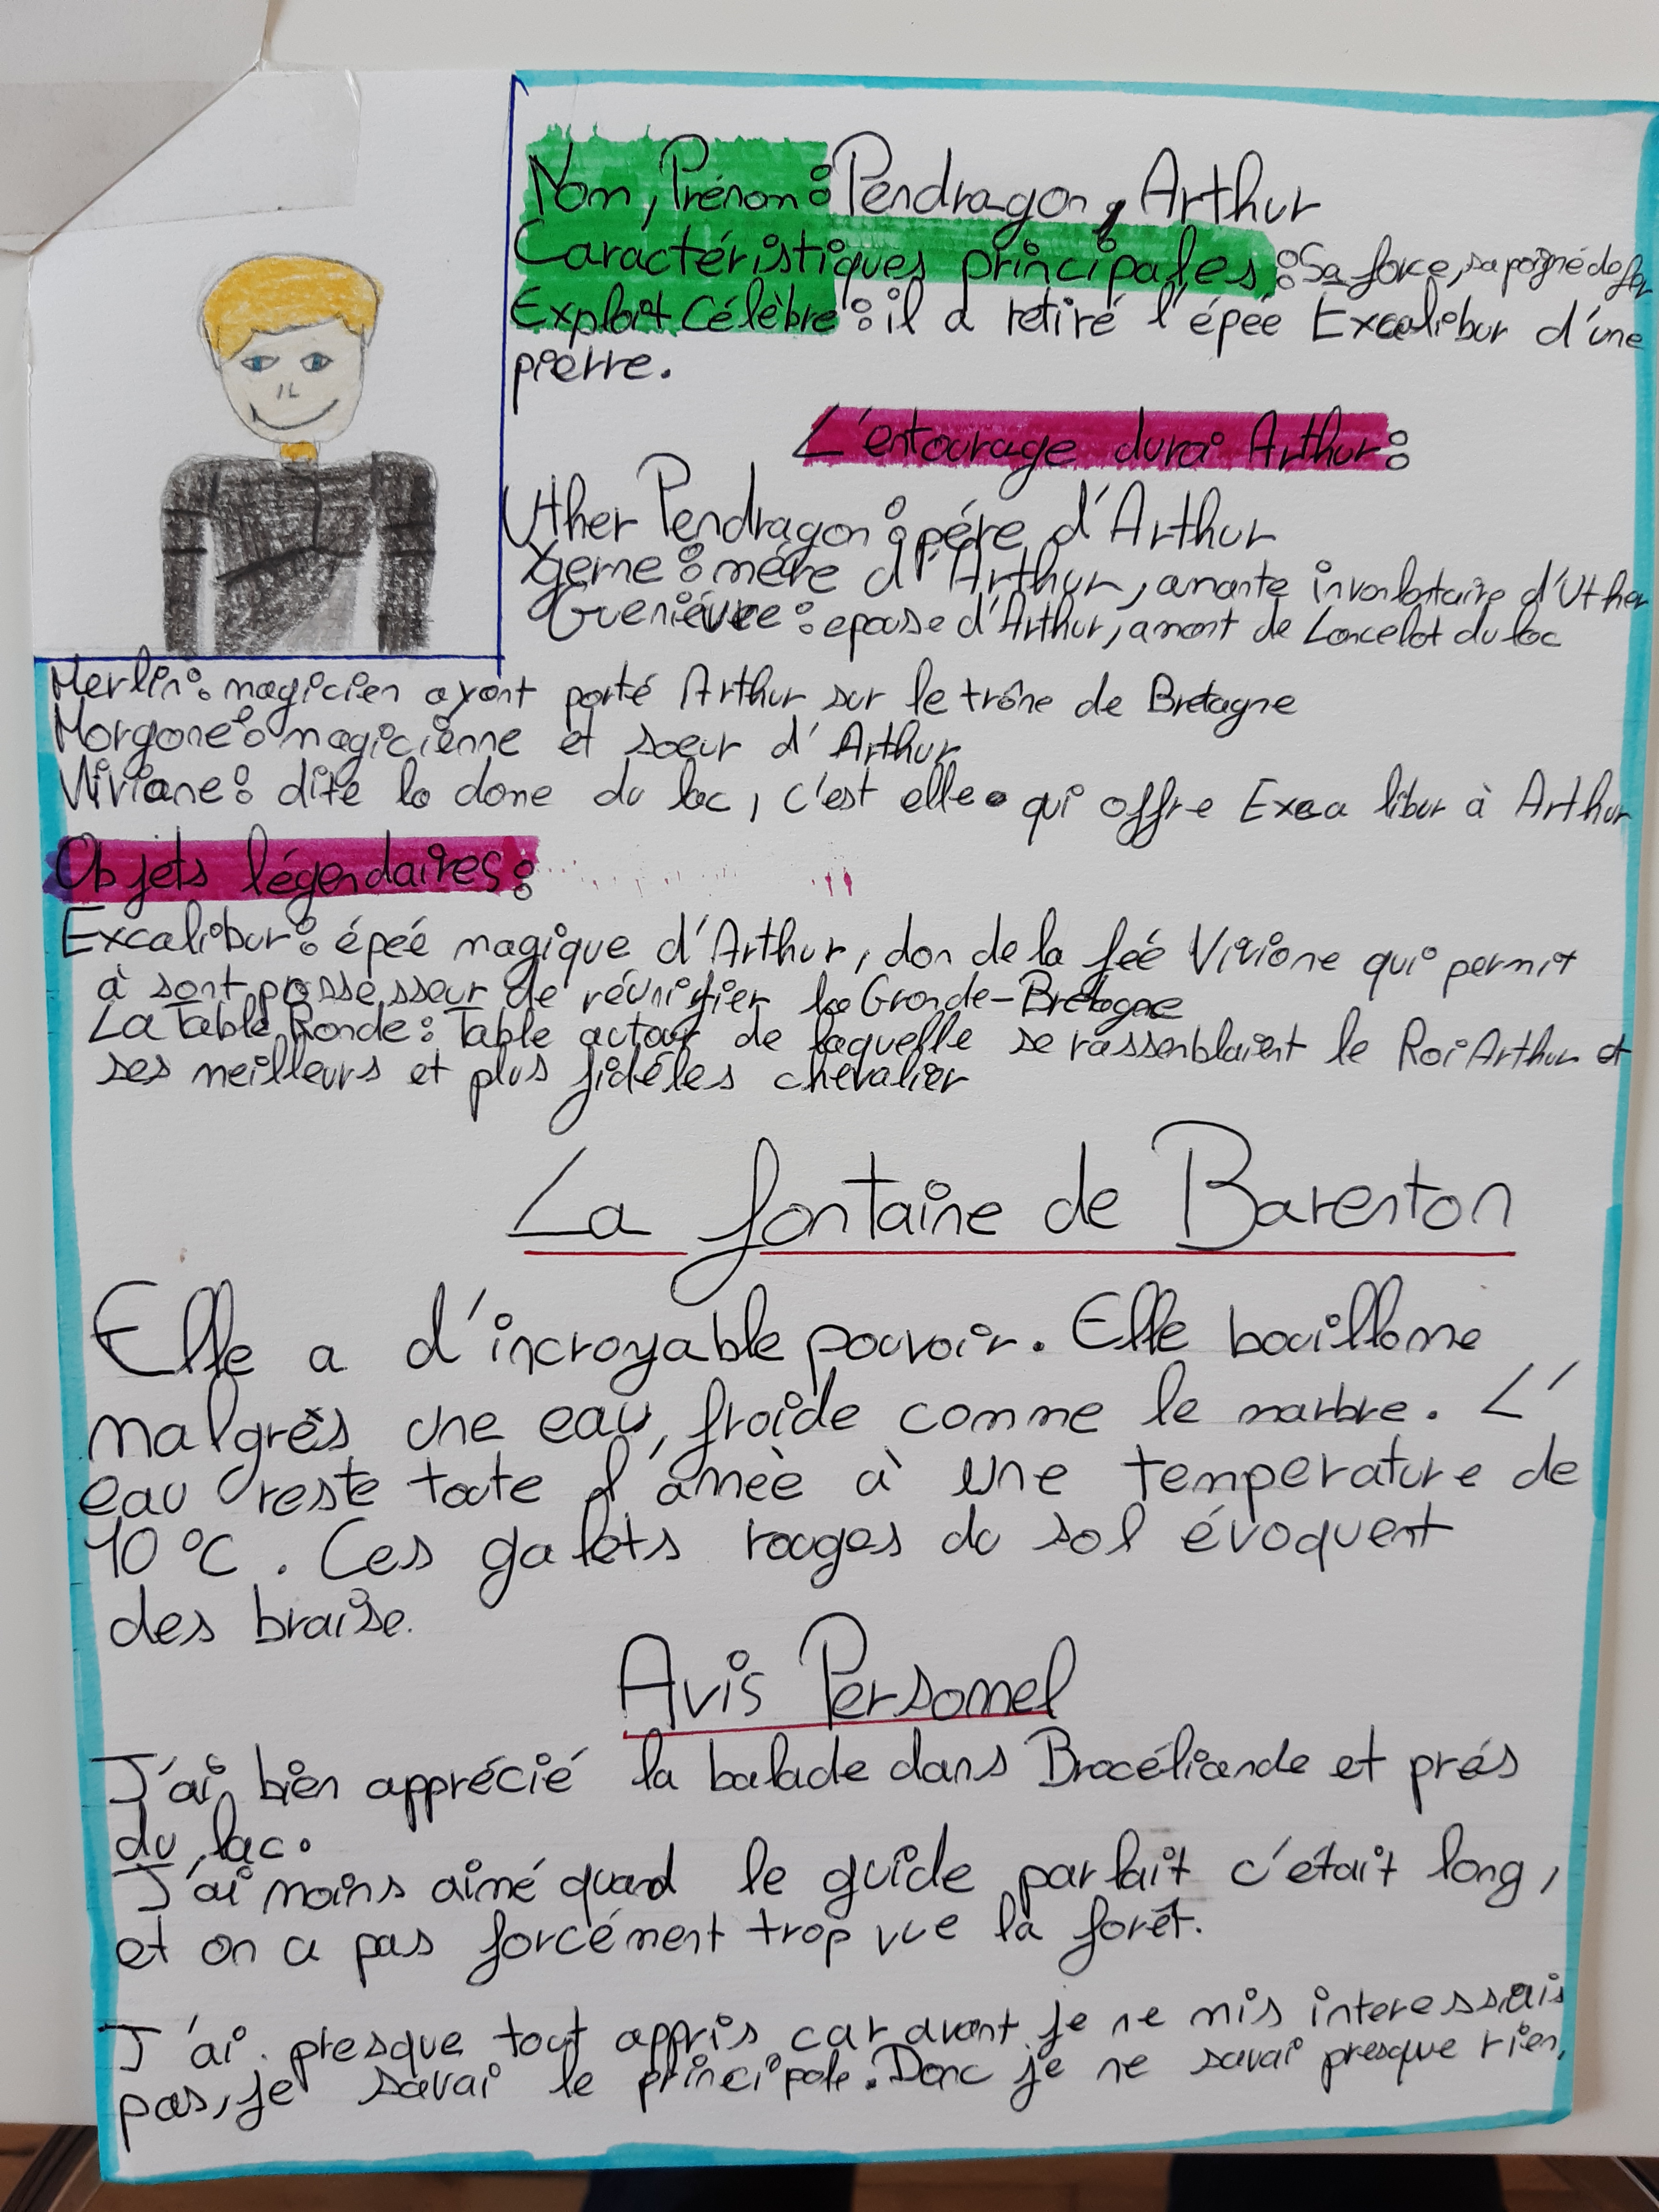 Nom, Prénom : Pendragon, Arthur
Caractéristiques principales : Sa force, sa poigné de fer
Exploit Célèbre : il a retiré l'épée Excalibur d'une
pierre.
L'entourage du roi Arthur :
Uther Pendragon : pére d'Arthur
Ygerne : mére d'Arthur, amante involontaire d'Uther
Gueniévre : epouse d'Arthur, amant de Lancelot du lac
Merlin : magicien ayant porté Arthur sur le trône de Bretagne
Morgane : magicienne et soeur d'Arthur
Viviane : dite la dame du lac, c'est elle qui offre Excalibur à Arthur
Objets légendaires :
Excalibur : épée magique d'Arthur, don de la fée Viviane qui permit
à sont possesseur de réunifier la Grande-Bretagne
La Table Ronde : Table autour de laquelle se rassemblaient le Roi Arthur et
ses meilleurs et plus fidéles chevalier
La fontaine de Barenton
Elle a d'incroyable pouvoir. Elle bouillonne
malgrès une eau froide comme le marbre. L'
eau reste toute l'anneè à une temperature de
10 °C. Ces galets rouges du sol évoquent
des braise.
Avis Personnel
J'ai bien apprécié la balade dans Brocéliande et prés
du lac.
J'ai moins aimé quand le guide parlait c'était long,
et on a pas forcément trop vue la forêt.
J'ai presque tout appris car avant je ne mis interessais
pas, je savai le principale. Donc je ne savai presque rien.